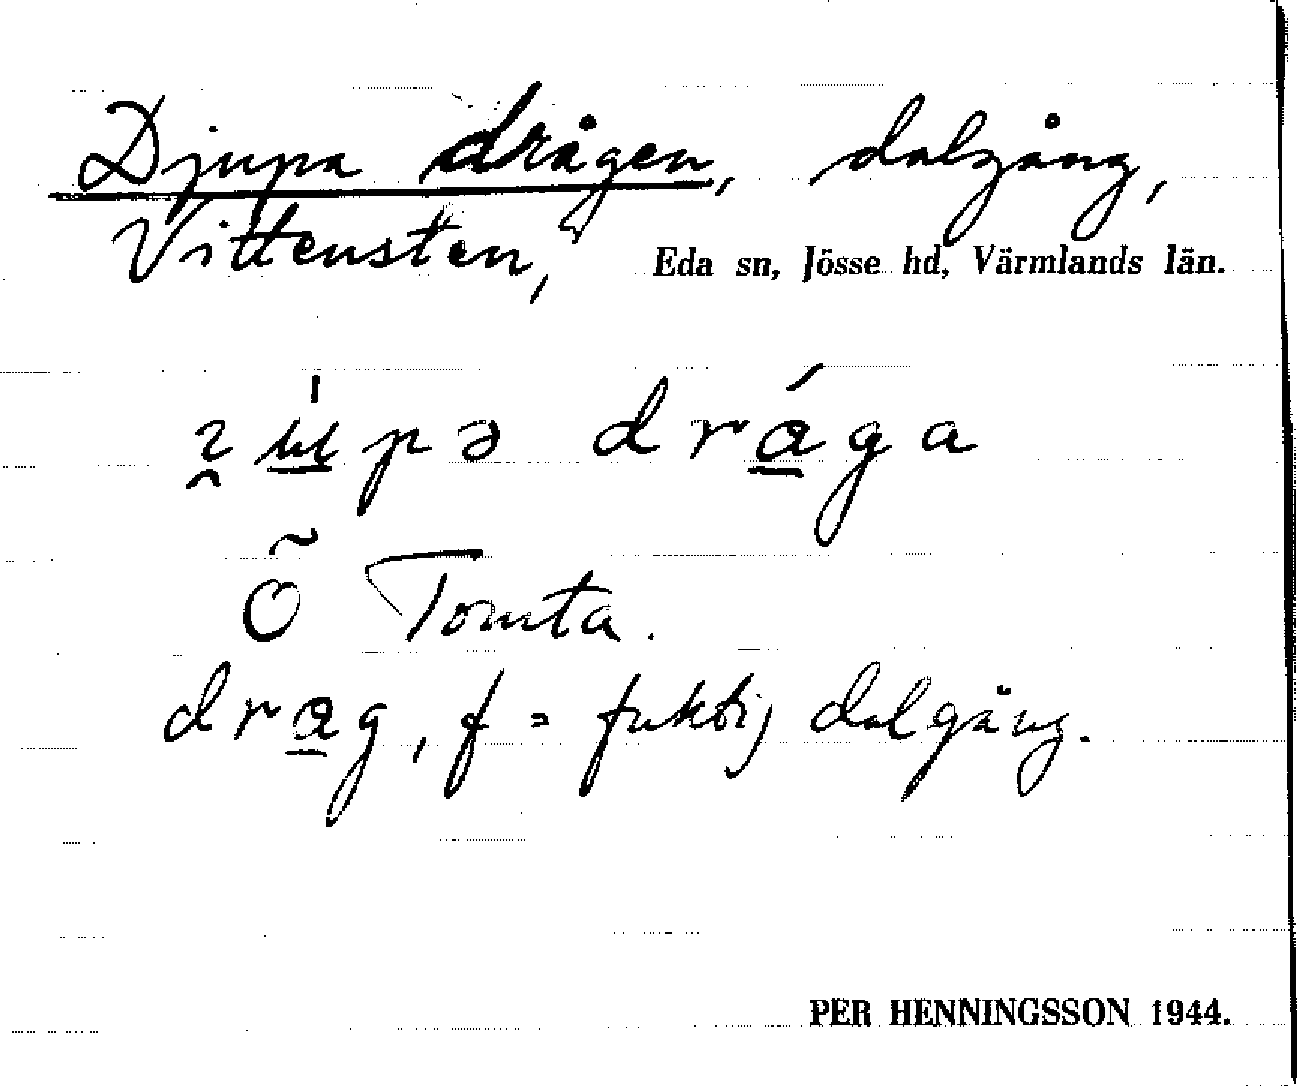 Djupa drågen, dalgång,
Vittensten, Eda sn, Jösse hd, Värmlands län.
drága
Õ Tomta.
drag, f = fuktig dalgång.
PER HENNINGSSON 1944.